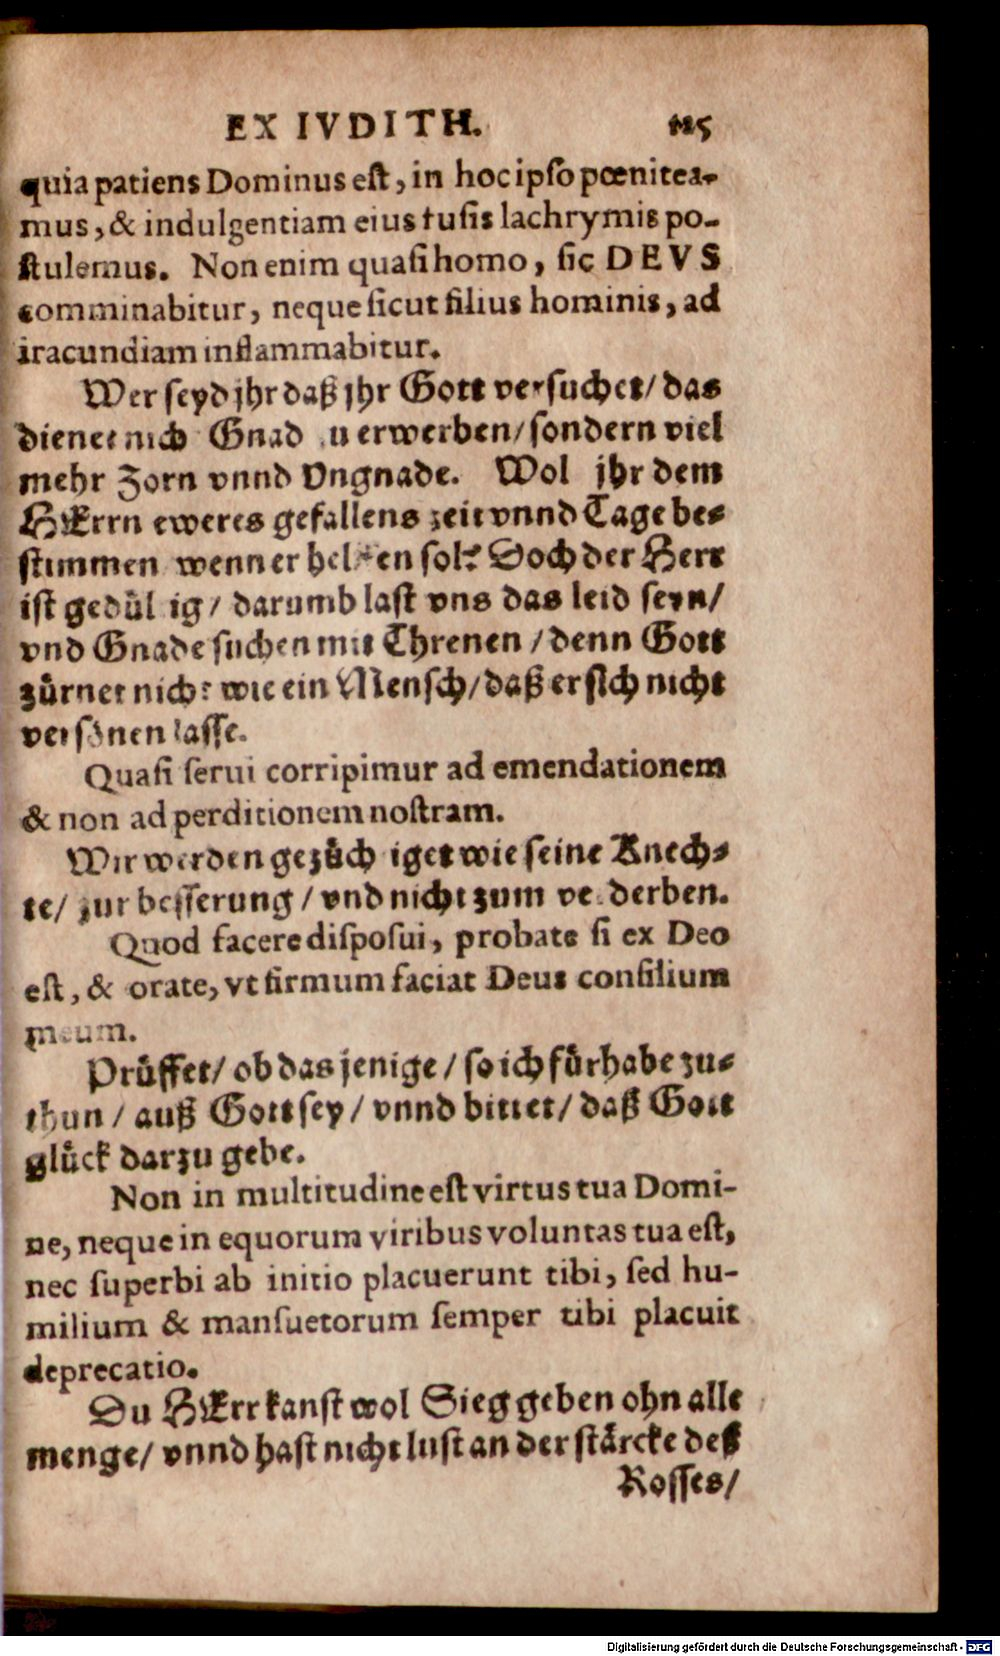 EX IVDITH. 125
quia patiens Dominus est, in hoc ipso pœnitea-
mus, & indulgentiam eius fusis lachrymis po-
stulemus. Non enim quasi homo, sic DEVS
comminabitur, neque sicut filius hominis, ad
iracundiam inflammabitur.
Wer seyd jhr daß jhr Gott versuchet/ das
dienet nich Gnad zu erwerben/ sondern viel
mehr Zorn vnnd Vngnade. Wol jhr dem
HErrn eweres gefallens zeit vnnd Tage be-
stimmen wenn er helffen sol? Doch der Herr
ist gedültig/ darumb last vns das leid seyn/
vnd Gnade suchen mit Threnen/ denn Gott
zürnet nicht wie ein Mensch/ daß er sich nicht
versönen lasse.
Quasi serui corripimur ad emendationem
& non ad perditionem nostram.
Wir werden gezüchtiget wie seine Knech-
te/ zur besserung/ vnd nicht zum verderben.
Quod facere disposui, probate si ex Deo
est, & orate, vt firmum faciat Deus consilium
meum.
Prüffet/ ob das jenige/ so ich fürhabe zu-
thun/ auß Gott sey/ vnnd bittet/ daß Gott
glück darzu gebe.
Non in multitudine est virtus tua Domi-
ne, neque in equorum viribus voluntas tua est,
nec superbi ab initio placuerunt tibi, sed hu-
milium & mansuetorum semper tibi placuit
deprecatio.
Du HErr kanst wol Sieg geben ohn alle
menge/ vnnd hast nicht lust an der stärcke deß
Rosses/
Digitalisierung gefördert durch die Deutsche Forschungsgemeinschaft - DFG